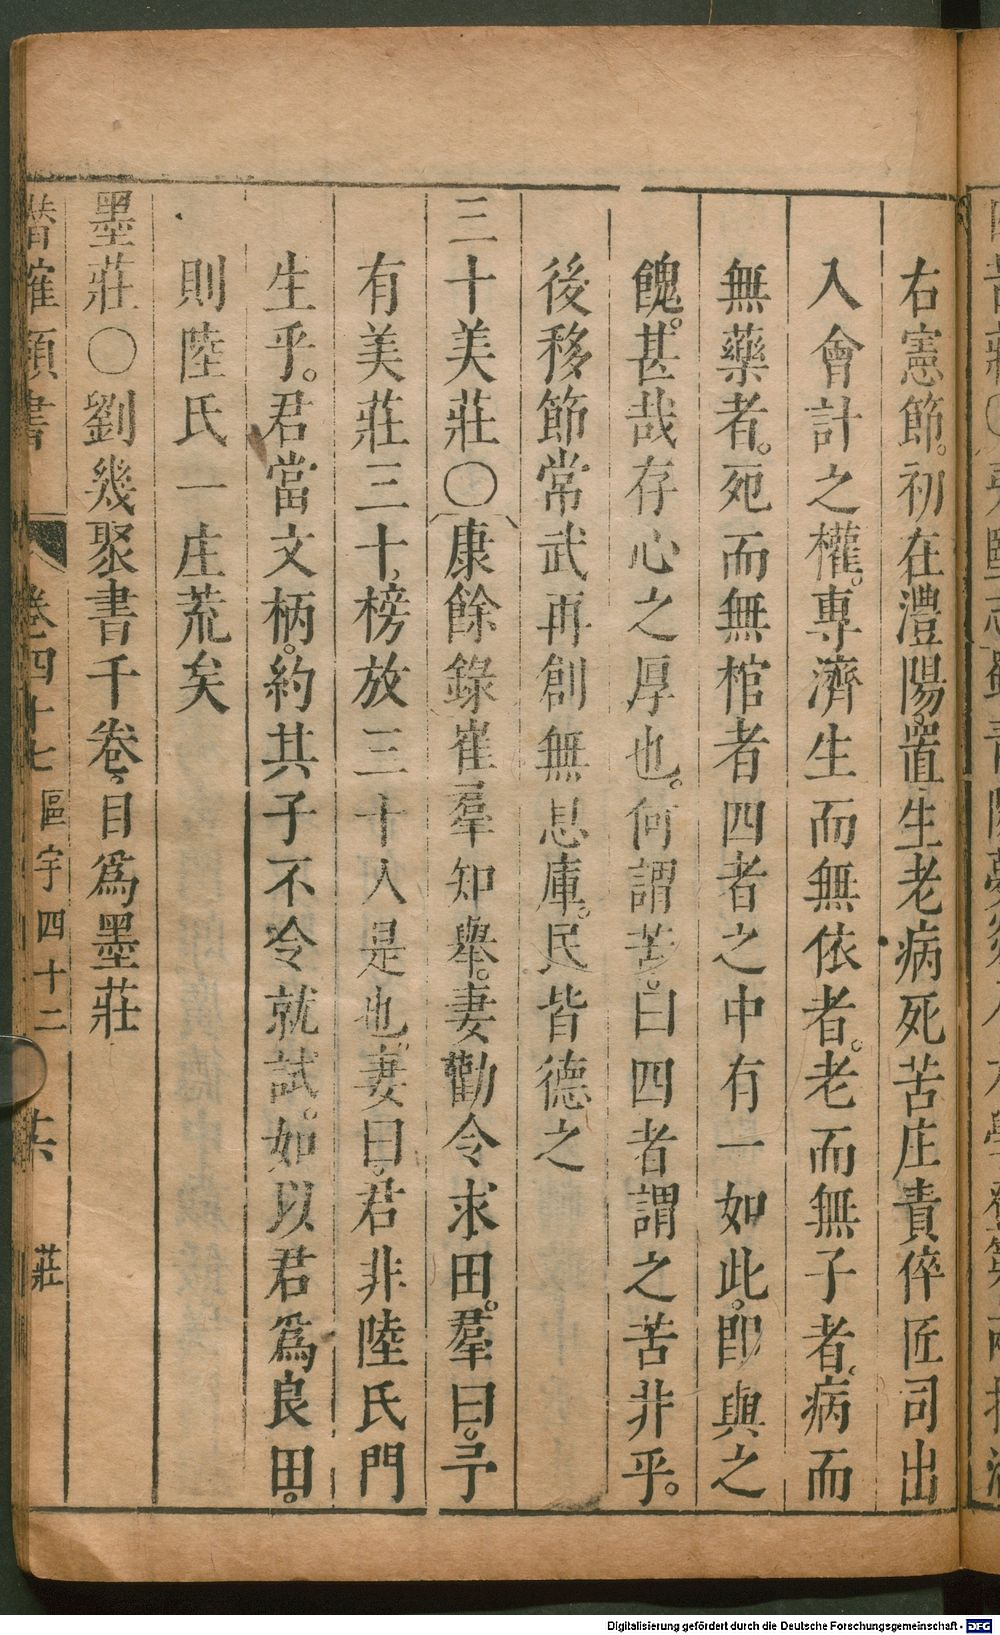 右憲節。初在澧陽。置生老病死苦庄責倅匠司出
入會計之權。專濟生而無依者。老而無子者。病而
無藥者。死而無棺者四者之中有一如此。即與之
餽。甚哉存心之厚也。何謂苦。曰四者謂之苦非乎。
後移節常武再創無息庫。民皆德之
三十美莊〇康餘錄崔羣知舉。妻勸令求田。羣曰。予
有美莊三十。榜放三十人是也。妻曰。君非陸氏門
生乎。君當文柄。約其子不令就試。如以君爲良田。
則陸氏一庄荒矣
墨莊〇劉幾聚書千卷。目爲墨莊
潛確類書 卷四十七 區宇四十二 莊
Digitalisierung gefördert durch die Deutsche Forschungsgemeinschaft - DFG